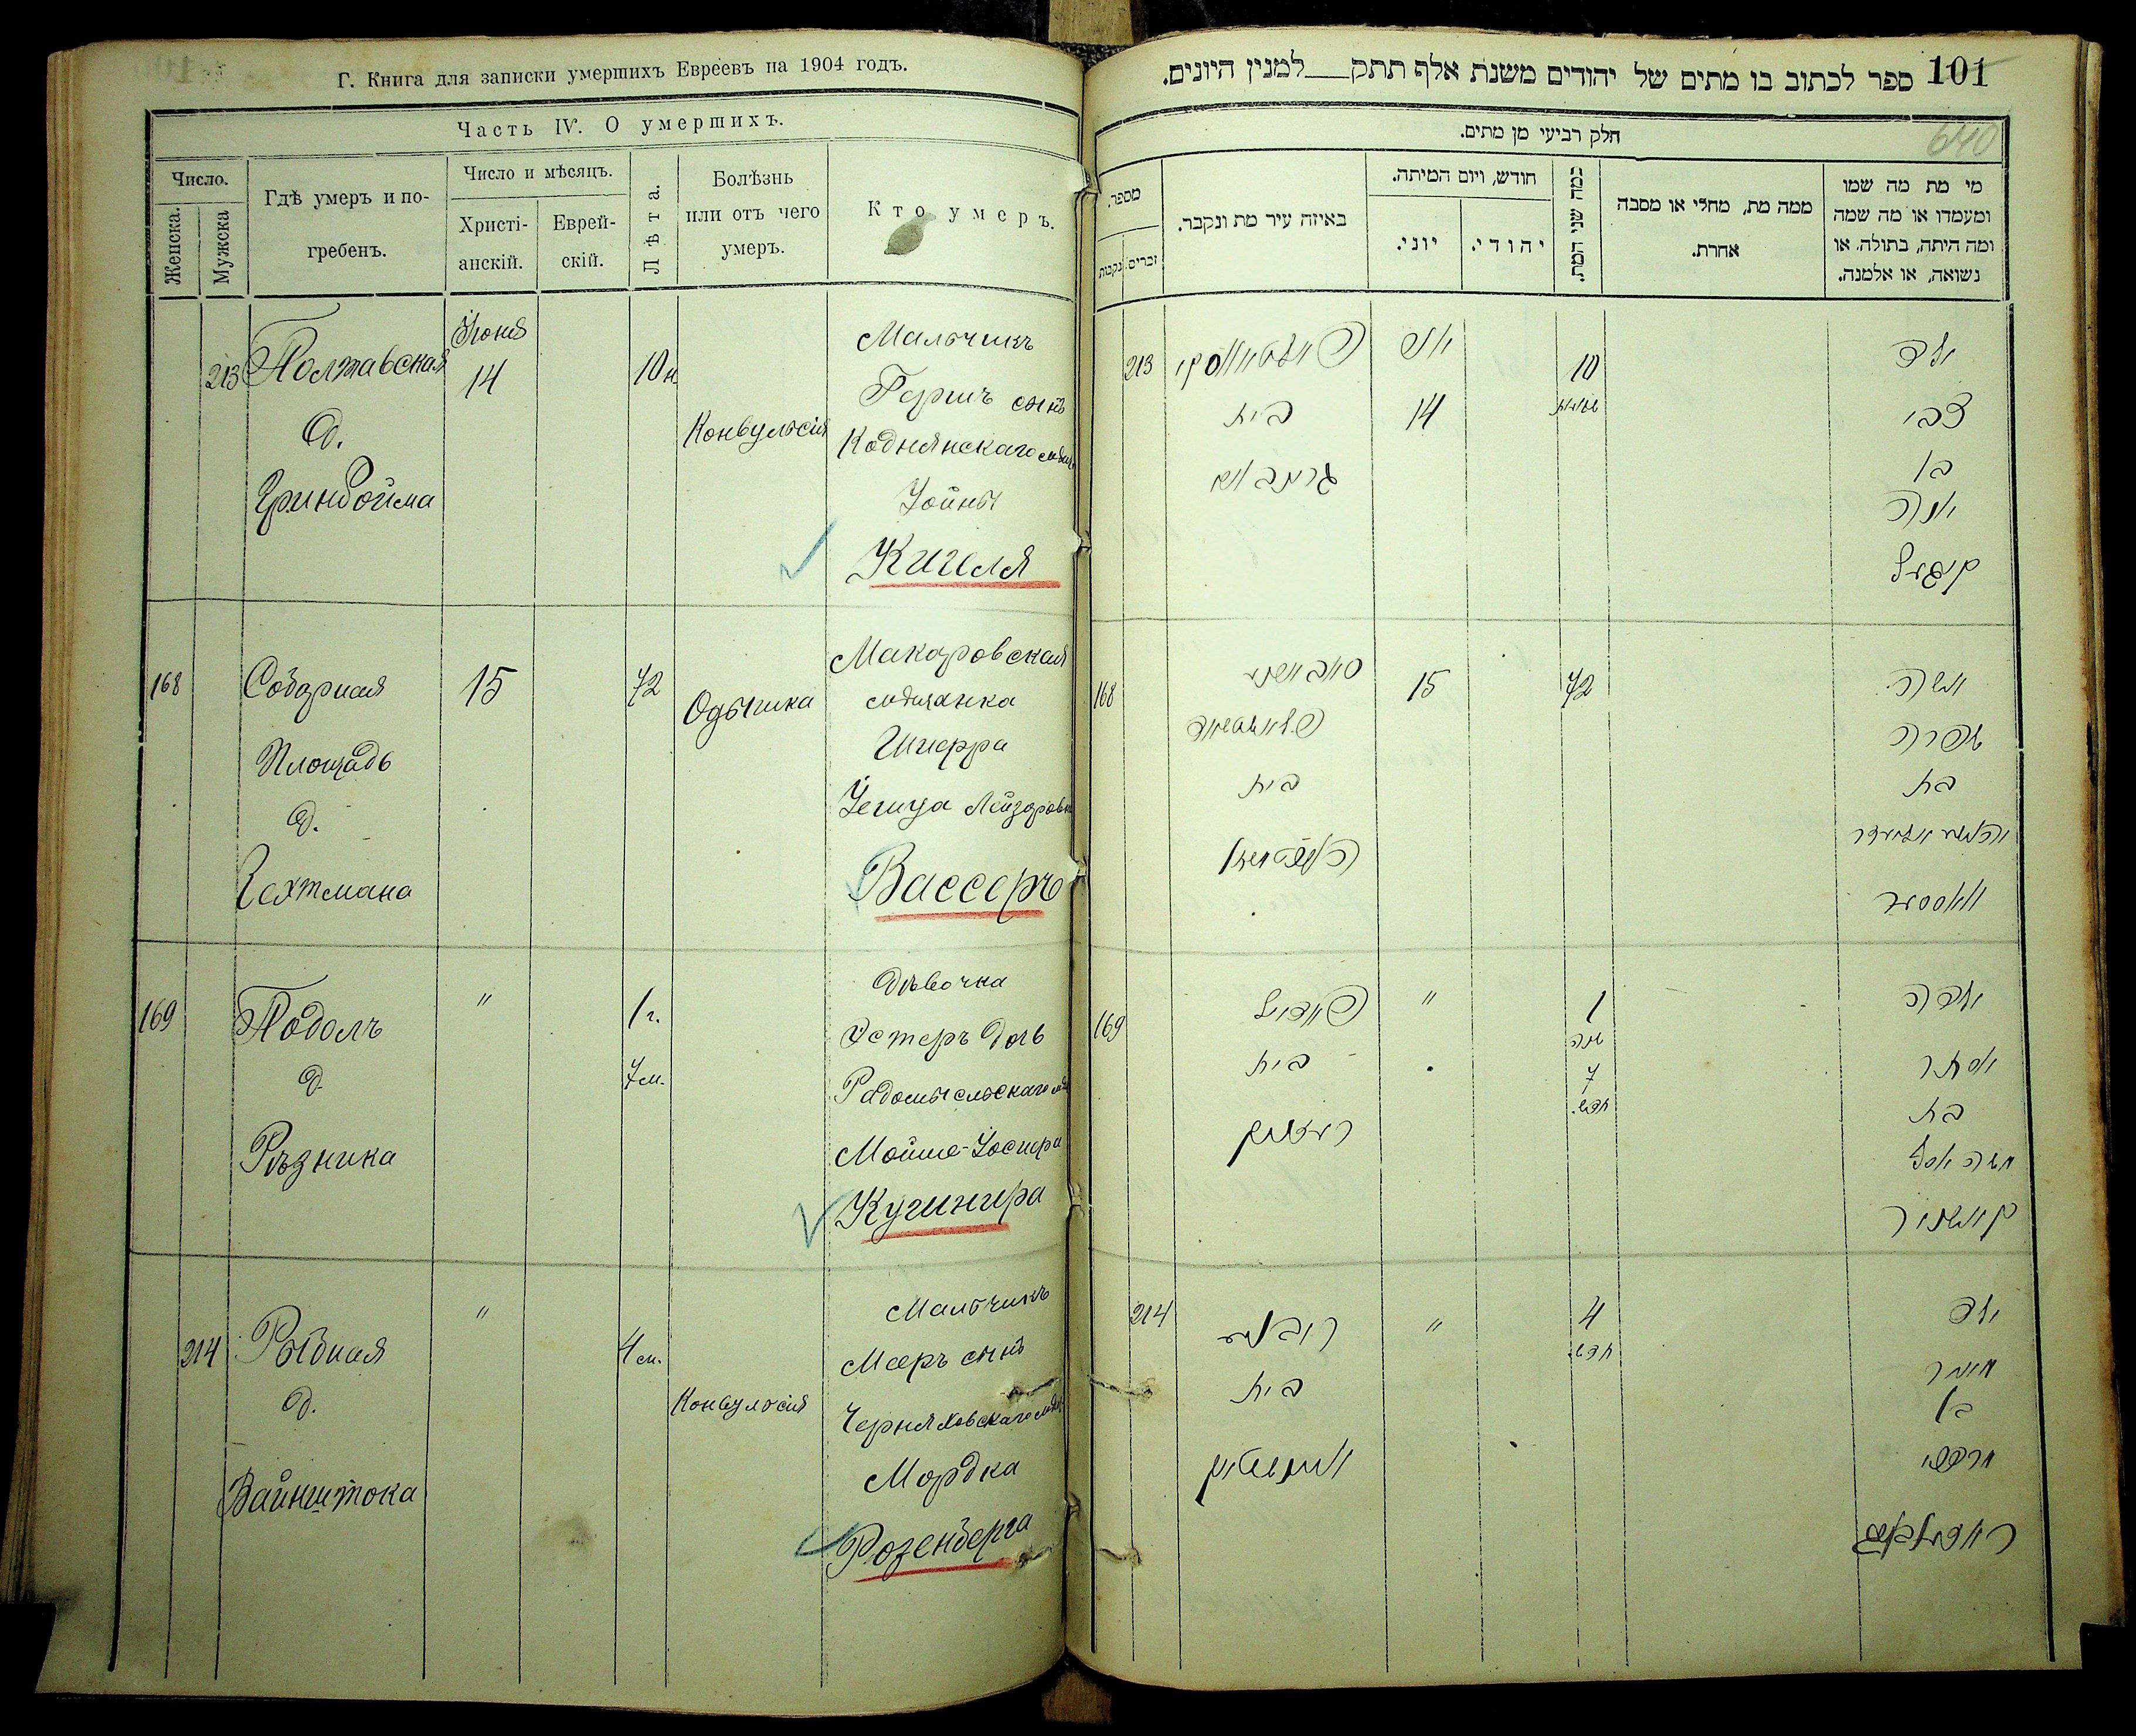 Г. Книга для записки умершихъ Евреевъ на 1904 годъ.
Часть IV. О умершихъ.
Число.
Женска.
Мужска
Гдѣ умеръ и по-
гребенъ.
Число и мѣсяцъ.
Христі-
анскій.
Еврей-
скій.
Лѣта.
Болѣзнь
или отъ чего
умеръ.
Кто умеръ.
213
Полтавская
д.
Гринбойма
Іюня
14
10 н.
Конвульсія
Мальчикъ
Гершъ сынъ
Коднянскаго
Іойны
Кигеля
168
Соборная
Площадь
д.
Гехтмана
15
72
Одышка
Макаровская
мѣщанка
Шифра
Лейзоровна
Вассеръ
169
Подолъ
д.
Рѣзника
"
1 г.
7 м.
Дѣвочка
Эстеръ дочь
Радомысльскаго
Мойше-Іосифа
Кушнира
214
Рыбная
д.
Вайнштока
"
4 м.
Конвульсія
Мальчикъ
Мееръ сынъ
Черняховскаго
Мордка
Розенберга
101
ספר לכתוב בו מתים של יהודים משנת אלף תתק___למנין היונים.
640
חלק רביעי מן מתים.
מספר.
זכרים
נקבות
באיזה עיר מת ונקבר.
חודש, ויום המיתה.
יוני.
יהודי.
כמה שני המת.
ממה מת, מחלי או מסבה
אחרת.
מי מת מה שמו
ומעמדו או מה שמה
ומה היתה, בתולה, או
נשואה, או אלמנה.
213
בית
גרינבוים
14
10
ילד
צבי
בן
יונה
קיגעל
168
בית
15
72
אשה
שפרה
בת
וואסער
169
פאדאל
בית
רעזניק
"
1
שנה
7
חדש.
ילדה
אסתר
בת
משה יוסף
קושניר
214
בית
וויינשטוק
"
4
חדש.
ילד
מאיר
בן
מרדכי
ראזענבערג